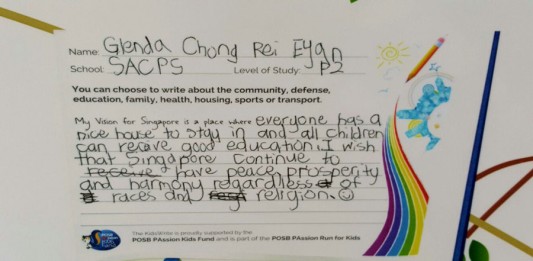 Name: Glenda Chong Rei Eyan
School: SACPS Level of Study: P2
You can choose to write about the community, defense,
education, family, health, housing, sports or transport.
My Vision for Singapore is a place where everyone has a
nice house to stay in and all children
can receive good education. I wish
that Singapore Continue to
receive have peace, prosperity
and harmony regardless of
races and religion.
The KidsWrite is proudly supported by the
POSB PAssion Kids Fund and is part of the POSB PAssion Run for Kids